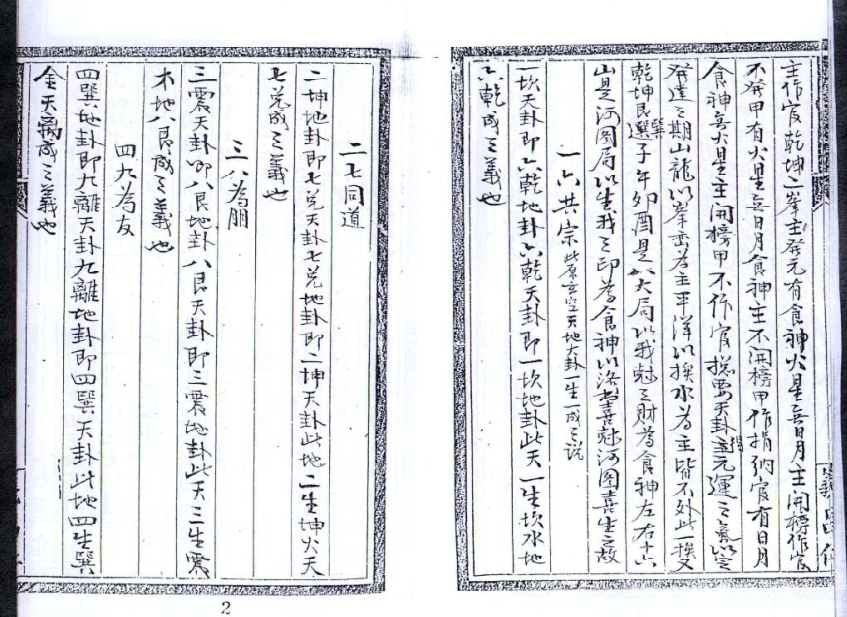 主作官乾坤一峯主發元有食神火星無日月主開榜作官
不發甲有火星無日月食神主不開榜甲作捐納官有日月
食神無火星主開榜甲不作官揔要天卦主得元運之氣以定
發達之期山龍以峯巒為主平洋以挨水為主皆不外此一挨又
乾坤艮巽選子午卯酉是八大局以我尅之財為食神左右十六
山是河圖局以生我之印為食神以洛書喜尅河圖喜生之故
一六共宗 此原玄空天地大卦一生一成之說
一坎天卦即六乾地卦六乾天卦即一坎地卦此天一生坎水地
六乾成之義也
二七同道
二坤地卦即七兑天卦七兑地卦即二坤天卦此地二生坤火天
七兑成之義也
三八為朋
三震天卦即八艮地卦八艮天卦即三震地卦此天三生震
木地八艮成之義也
四九為友
四巽地卦即九離天卦九離地卦即四巽天卦此地四生巽
金天離成之義也
2